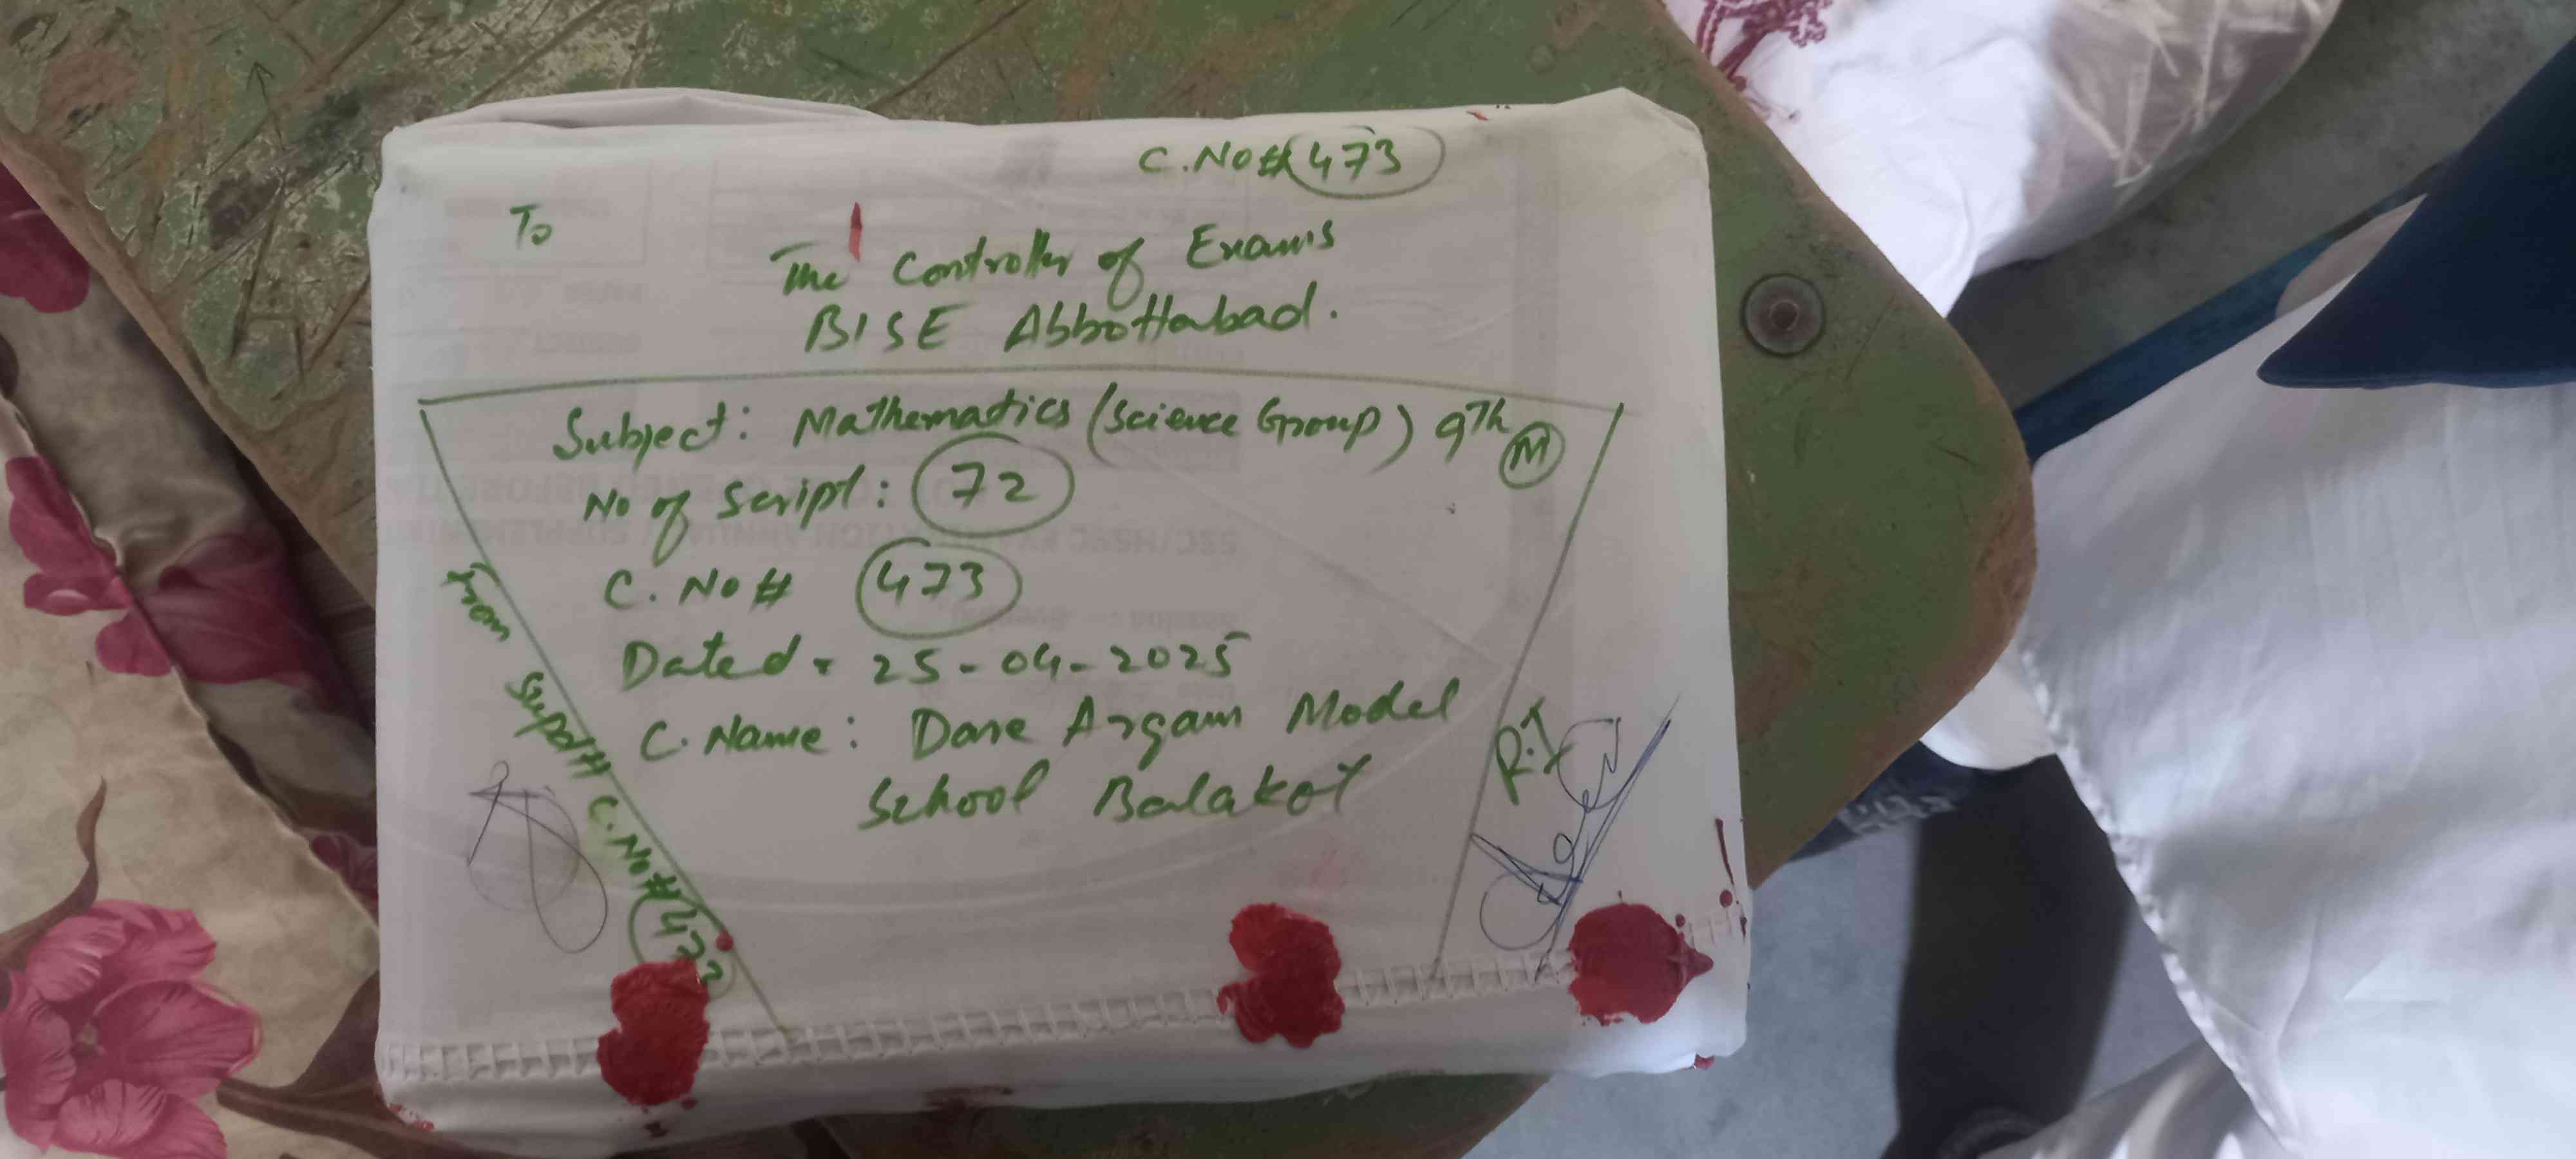 C.No# 473
To
The Controller of Exams
BISE Abbottabad.
Subject: Mathematics (Science Group) 9Th M
No of Script: 72
C. No# 473
Dated = 25-04-2025
C. Name: Dare Argam Model
School Balakot
From Supdtt C.No# 473
R.I